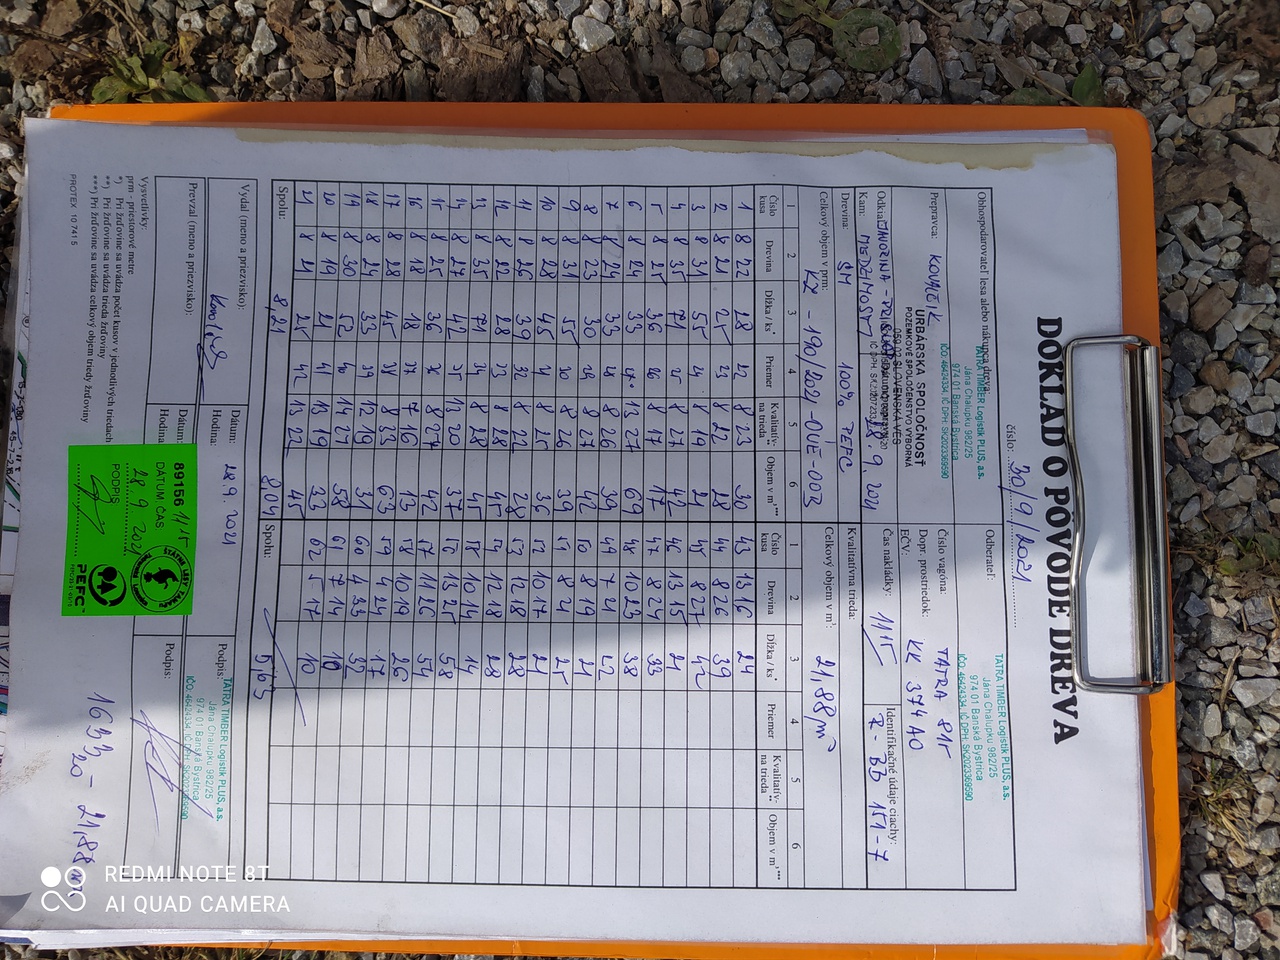 DOKLAD O PÔVODE DREVA
číslo: 30/9/2021
Obhospodarovateľ lesa alebo nákupca dreva:
TATRA TIMBER Logistik PLUS, a.s.
Jána Chalupku 982/25
974 01 Banská Bystrica
IČO: 46424334, IČ DPH: SK2023369590
URBÁRSKA SPOLOČNOSŤ
POZEMKOVÉ SPOLOČENSTVO VÝBORNÁ
Odberateľ:
TATRA TIMBER Logistik PLUS, a.s.
Jána Chalupku 982/25
974 01 Banská Bystrica
IČO: 46424334, IČ DPH: SK2023369590
Prepravca: KOVALČIK
Číslo vagóna: TATRA 815
Dopr. prostriedok:
EČV: KK 374AO
Kam:
Čas nakládky: 11 15
Identifikačné údaje ciachy:
R - BB 151-7
Drevina: SM 100% PEFC
Kvalitatívna trieda:
Celkový objem v prm:
Celkový objem v m³: 21,88 m³
1 2 3 4 5 6 1 2 3 4 5 6
Číslo kusa Drevina Dĺžka / ks* Priemer Kvalitatív- na trieda** Objem v m³*** Číslo kusa Drevina Dĺžka / ks* Priemer Kvalitatív- na trieda** Objem v m³***
1 8 22 28 22 8 23 30 43 13 16 24
2 8 21 25 23 8 22 28 44 8 26 39
3 8 31 55 24 8 19 21 45 8 27 42
4 8 35 71 25 8 27 42 46 13 15 21
5 8 25 36 26 8 17 17 47 8 24 33
6 8 24 33 27 13 27 69 48 10 23 38
7 8 24 33 28 8 26 39 49 7 21 22
8 8 23 30 29 8 27 42 50 8 19 21
9 8 31 55 30 8 26 39 51 8 21 25
10 8 28 45 31 8 25 36 52 10 17 21
11 8 26 39 32 8 22 28 53 12 18 28
12 8 22 28 33 8 28 45 54 12 18 28
13 8 35 71 34 8 28 45 55 10 14 14
14 8 27 42 35 13 20 37 56 13 25 58
15 8 25 36 36 8 27 42 57 11 26 54
16 8 18 18 37 7 16 13 58 10 19 26
17 8 28 45 38 8 33 63 59 4 24 17
18 8 24 33 39 12 19 31 60 4 33 32
19 8 30 52 40 14 27 58 61 7 14 10
20 8 19 21 41 13 19 33 62 5 17 10
21 8 21 25 42 13 22 45
Spolu: 8,21 8,04 Spolu: 5,63
Vydal (meno a priezvisko):
Dátum: 28.9.2021
Hodina:
Podpis:
TATRA TIMBER Logistik PLUS, a.s.
Jána Chalupku 982/25
974 01 Banská Bystrica
IČO: 46424334, IČ DPH: SK2023369590
Prevzal (meno a priezvisko):
Dátum:
Hodina:
Podpis:
89156 11 15
DÁTUM, ČAS
28.9.2021
PODPIS
ŠTÁTNE LESY TANAPu
PEFC
Vysvetlivky:
prm - priestorové metre
*) Pri žrďovine sa uvádza počet kusov v jednotlivých triedach
**) Pri žrďovine sa uvádza trieda žrďoviny
***) Pri žrďovine sa uvádza celkový objem triedy žrďoviny
PROTEX 10 741 5
REDMI NOTE 8T
AI QUAD CAMERA